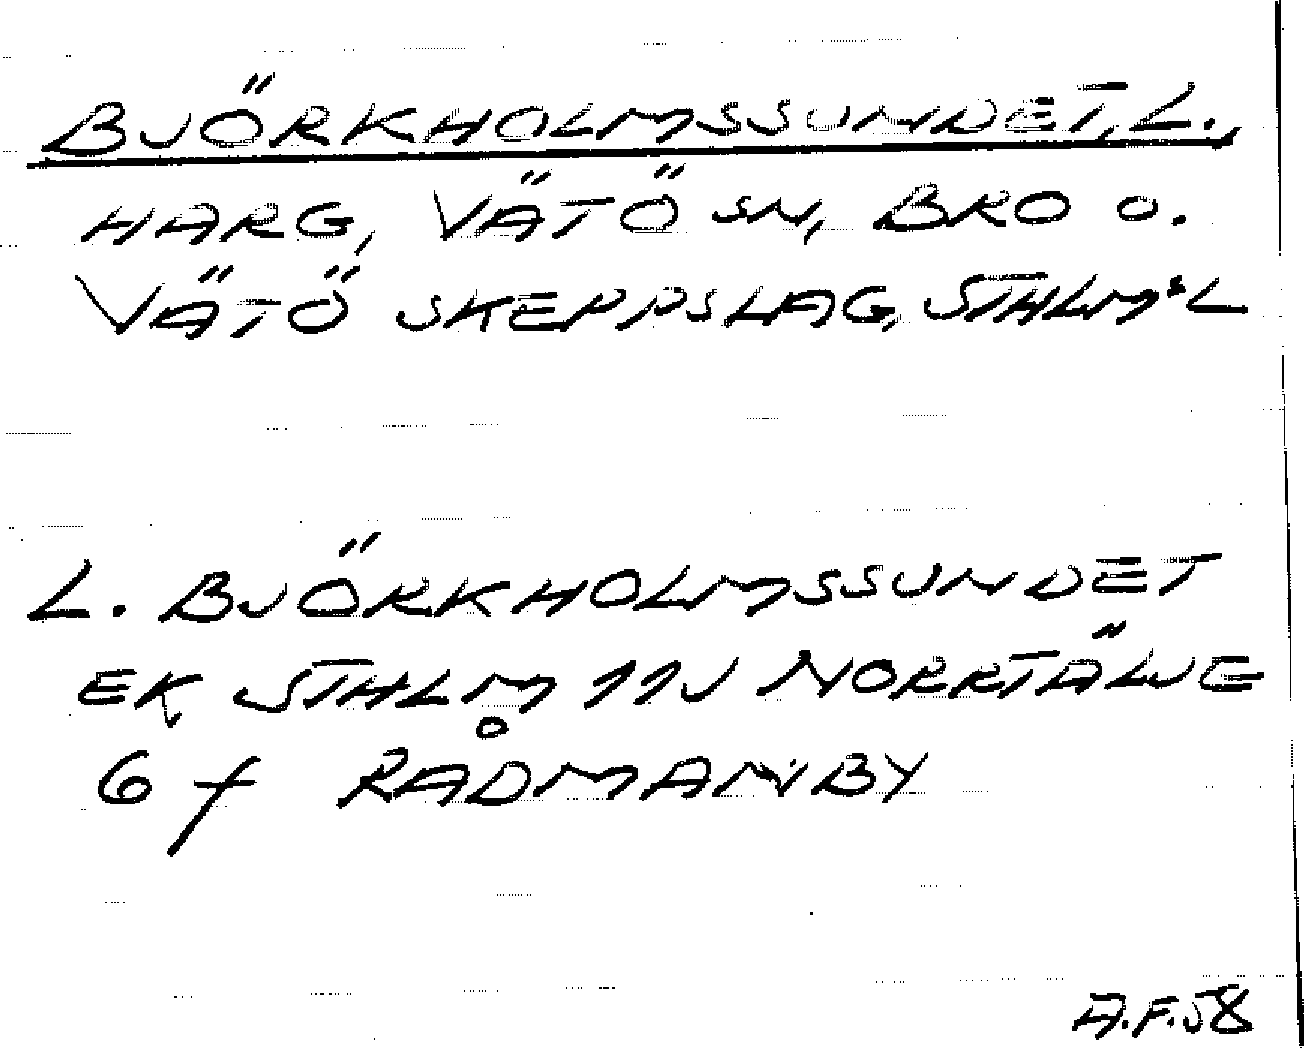 BJÖRKHOLMSSUNDET, L.,
HARG, VÄTÖ SN, BRO O.
VÄTÖ SKEPPSLAG, STHLMS L
L. BJÖRKHOLMSSUNDET
EK STHLM 11J NORRTÄLJE
6 f RÅDMANBY
A.F.58